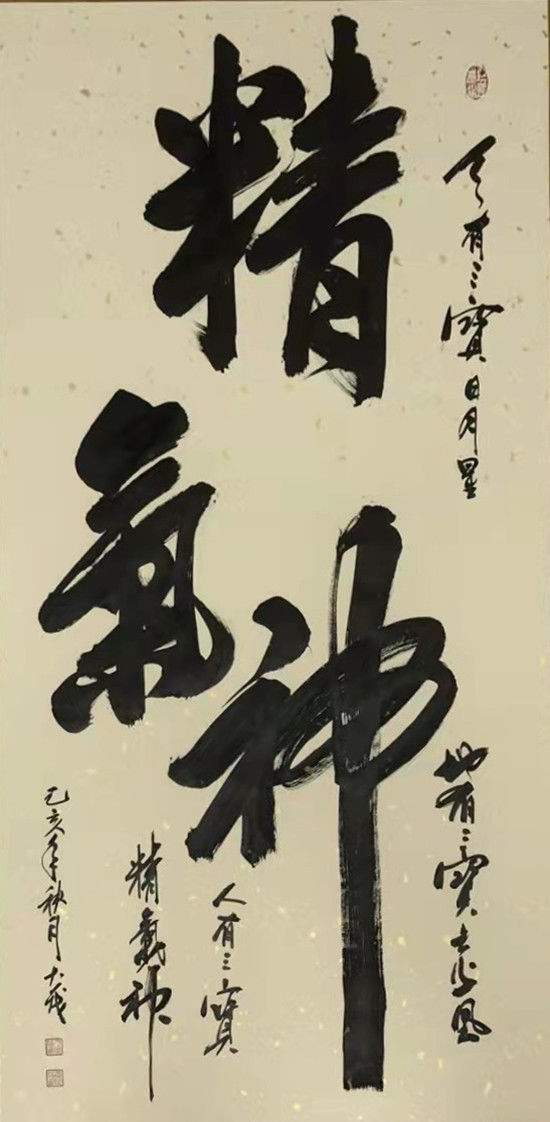 精
氣
神
天有三寶日月星
地有三寶水火風
人有三寶
精氣神
己亥年秋月